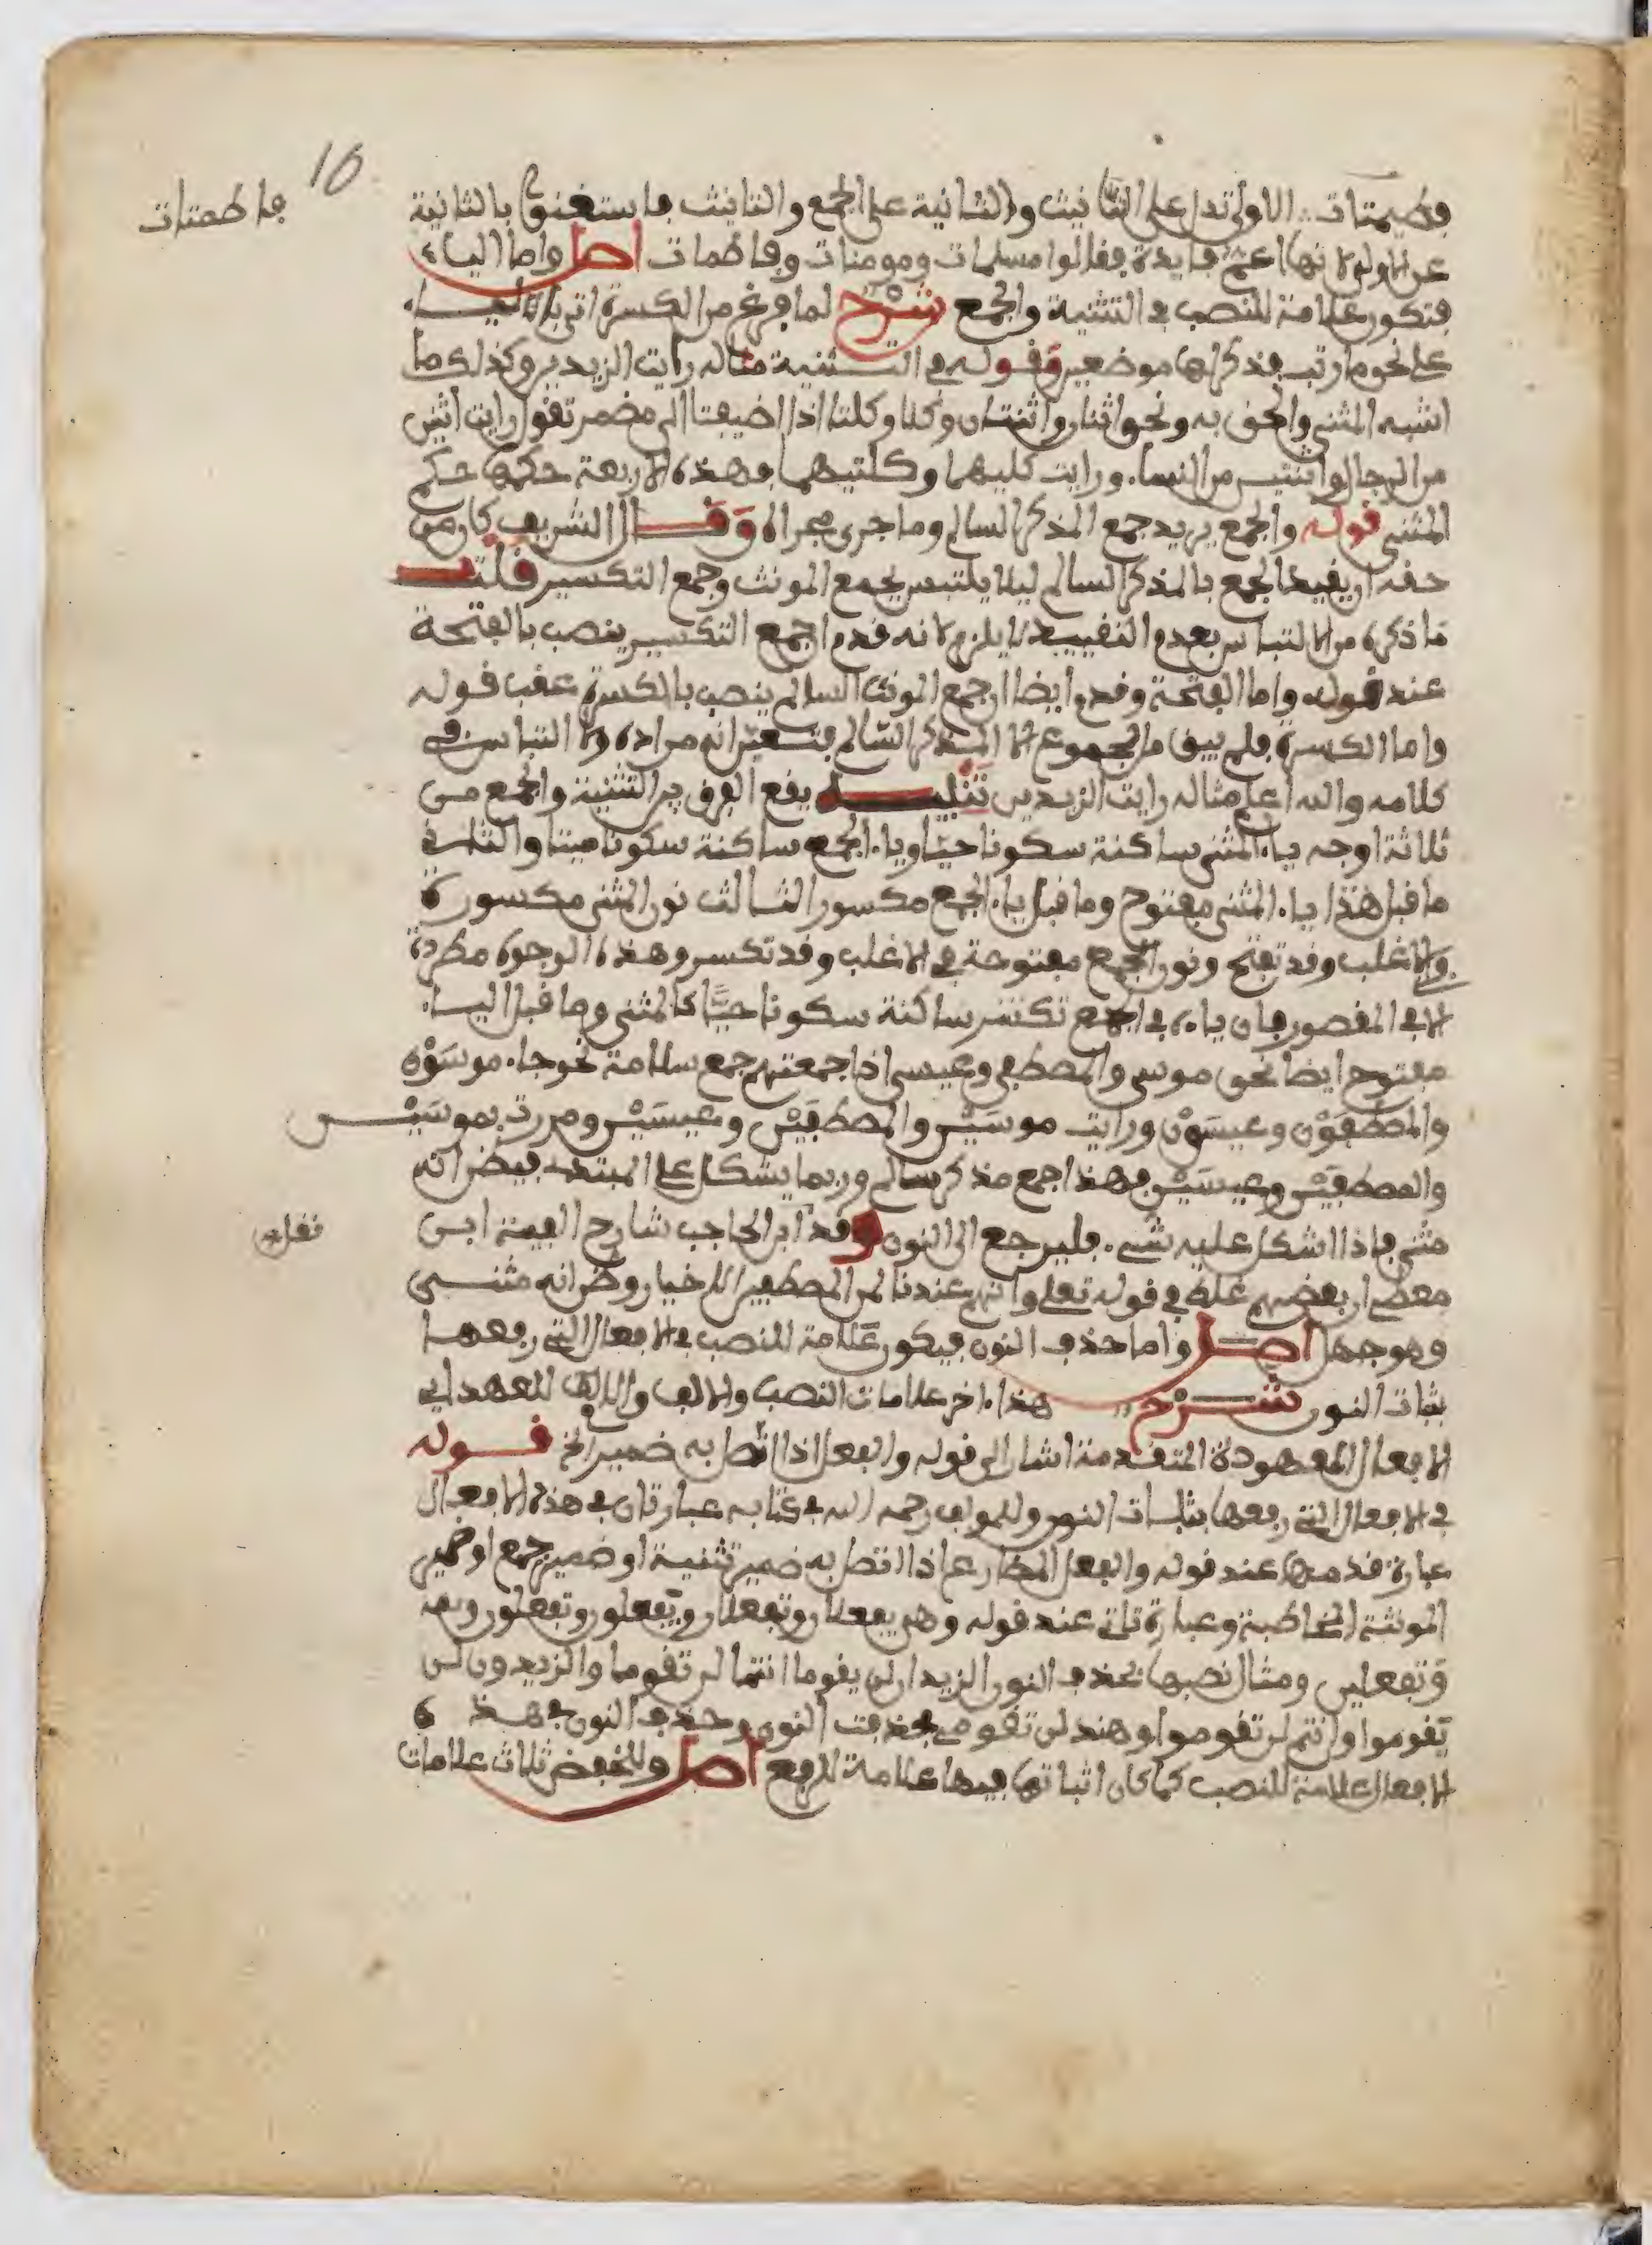 16
فاطمتات
فطيمتات الاولى تدل على التانيث والثانية على الجمع والتانيث فاستغنوا بالثانية
عن الاولى لانها اعم فايدة فقالوا مسلمات ومومنات وفاطمات اصل واما الياء
فتكون علامة للنصب في التثنية والجمع شرح لما فرغ من الكسرة اتى بالياء
على نحو ما رتب فذكر لها موضعين وقوله في التثنية مثاله رايت الزيدين وكذلك ما
اشبه المثنى والحق به ونحو اثنان واثنتان وكلا وكلتا اذا اضيفتا الى مضمر تقول رايت اثنين
من الرجال واثنتين من النساء ورايت كليهما وكلتيهما فهذه الاربعة حكمها حكم
المثنى قوله والجمع يريد جمع المذكر السالم وما جرى مجراه وقال الشريف كان من
حقه ان يقيد الجمع بالمذكر السالم ليلا يلتبس بجمع المونث وجمع التكسير قلت
ما ذكره من الالتباس بعدم التقييد لا يلزم لانه قدم ان جمع التكسير ينصب بالفتحة
عند قوله واما الفتحة وقدم ايضا ان جمع المونث السالم ينصب بالكسرة عقب قوله
واما الكسرة فلم يبق من الجموع الا المذكر السالم فتعين انه مراده ولا التباس في
كلامه والله اعلم مثاله رايت الزيدين تنبيه يقع الفرق بين التثنية والجمع من
ثلاثة اوجه ياء المثنى ساكنة سكونا حيا وياء الجمع ساكنة سكونا ميتا والثاني
ما قبل هذا ياء المثنى مفتوح وما قبل ياء الجمع مكسور الثالث نون المثنى مكسورة
في الاغلب وقد تفتح ونون الجمع مفتوحة في الاغلب وقد تكسر وهذه الوجوه مطردة
الا في المقصور فان ياءه في الجمع تكون ساكنة سكونا حيا كالمثنى وما قبل الياء
مفتوح ايضا نحو موسى والمصطفى وعيسى اذا جمعتهم جمع سلامة نحو جاء موسَوْن
والمصطفَوْن وعيسَوْن ورايت موسَيْن والمصطفَيْن وعيسَيْن ومررت بموسَيْن
والمصطفَيْن وعيسَيْن فهذا جمع مذكر سالم وربما يشكل على المبتدء فيظن انه
مثنى فاذا اشكل عليه شيء فليرجع الى النون وقد ابن الحاجب شارح الفية ابن
نقل
معط ان بعضهم غلط في قوله تعلى وانهم عندنا لمن المصطفين الاخيار وظن انه مثنى
وهو جهل اصل واما حذف النون فيكون علامة للنصب في الافعال التي رفعها
بثبات النون شرح هذا اخر علامات النصب والالف واللام للعهد اي
الافعال المعهودة المتقدمة اشار الى قوله والفعل اذا اتصل به ضمير الخ قوله
في الافعال التي رفعها بثبات النون وللمولف رحمه الله في كتابه عبارتان في هذه الافعال
عبارة قدمها عند قوله والفعل المضارع اذا اتصل به ضمير تثنية او ضمير جمع او ضمير
المونثة المخاطبة وعبارة تاتي عند قوله وهي يفعلان وتفعلان ويفعلون وتفعلون
وتفعلين ومثال نصبها بحذف النون الزيدان لن يقوما انتما لن تقوما والزيدون لن
يقوموا وانتم لن تقوموا وهند لن تقومي فحذفت النون وحذف النون في هذه
الافعال علامة للنصب كما كان اثباتها فيها علامة للرفع اصل وللخفض ثلاث علامات